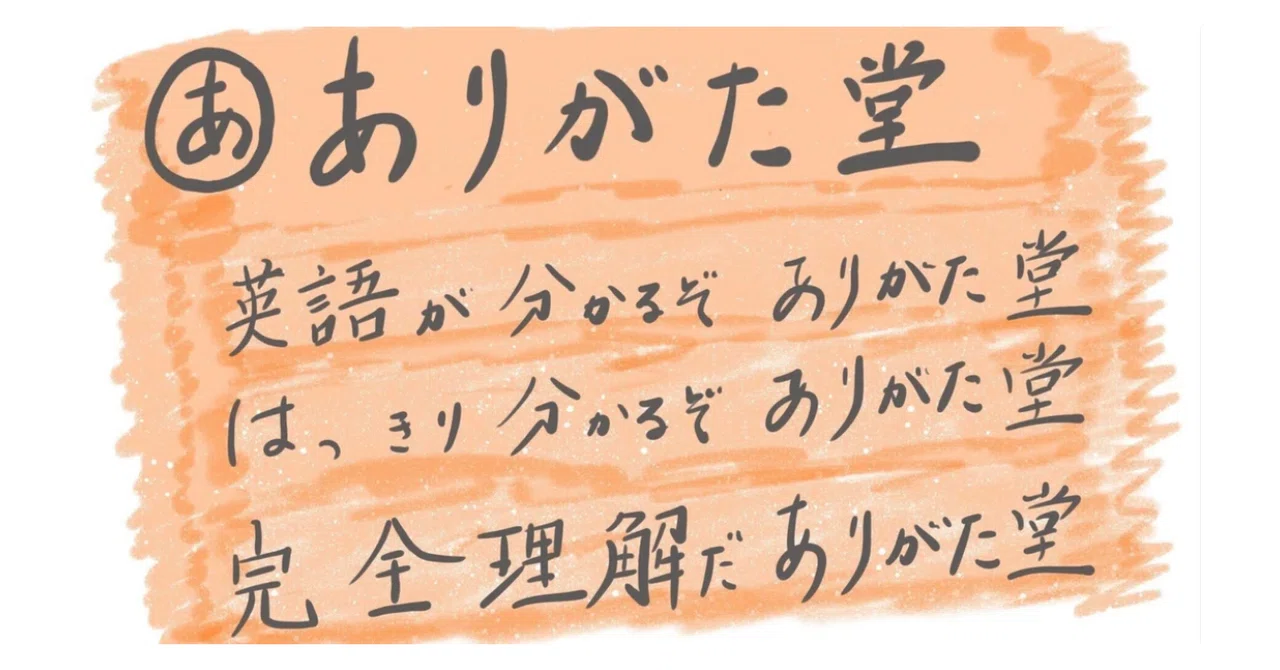 あ ありがた堂
英語が分かるぞ ありがた堂
はっきり分かるぞ ありがた堂
完全理解だ ありがた堂